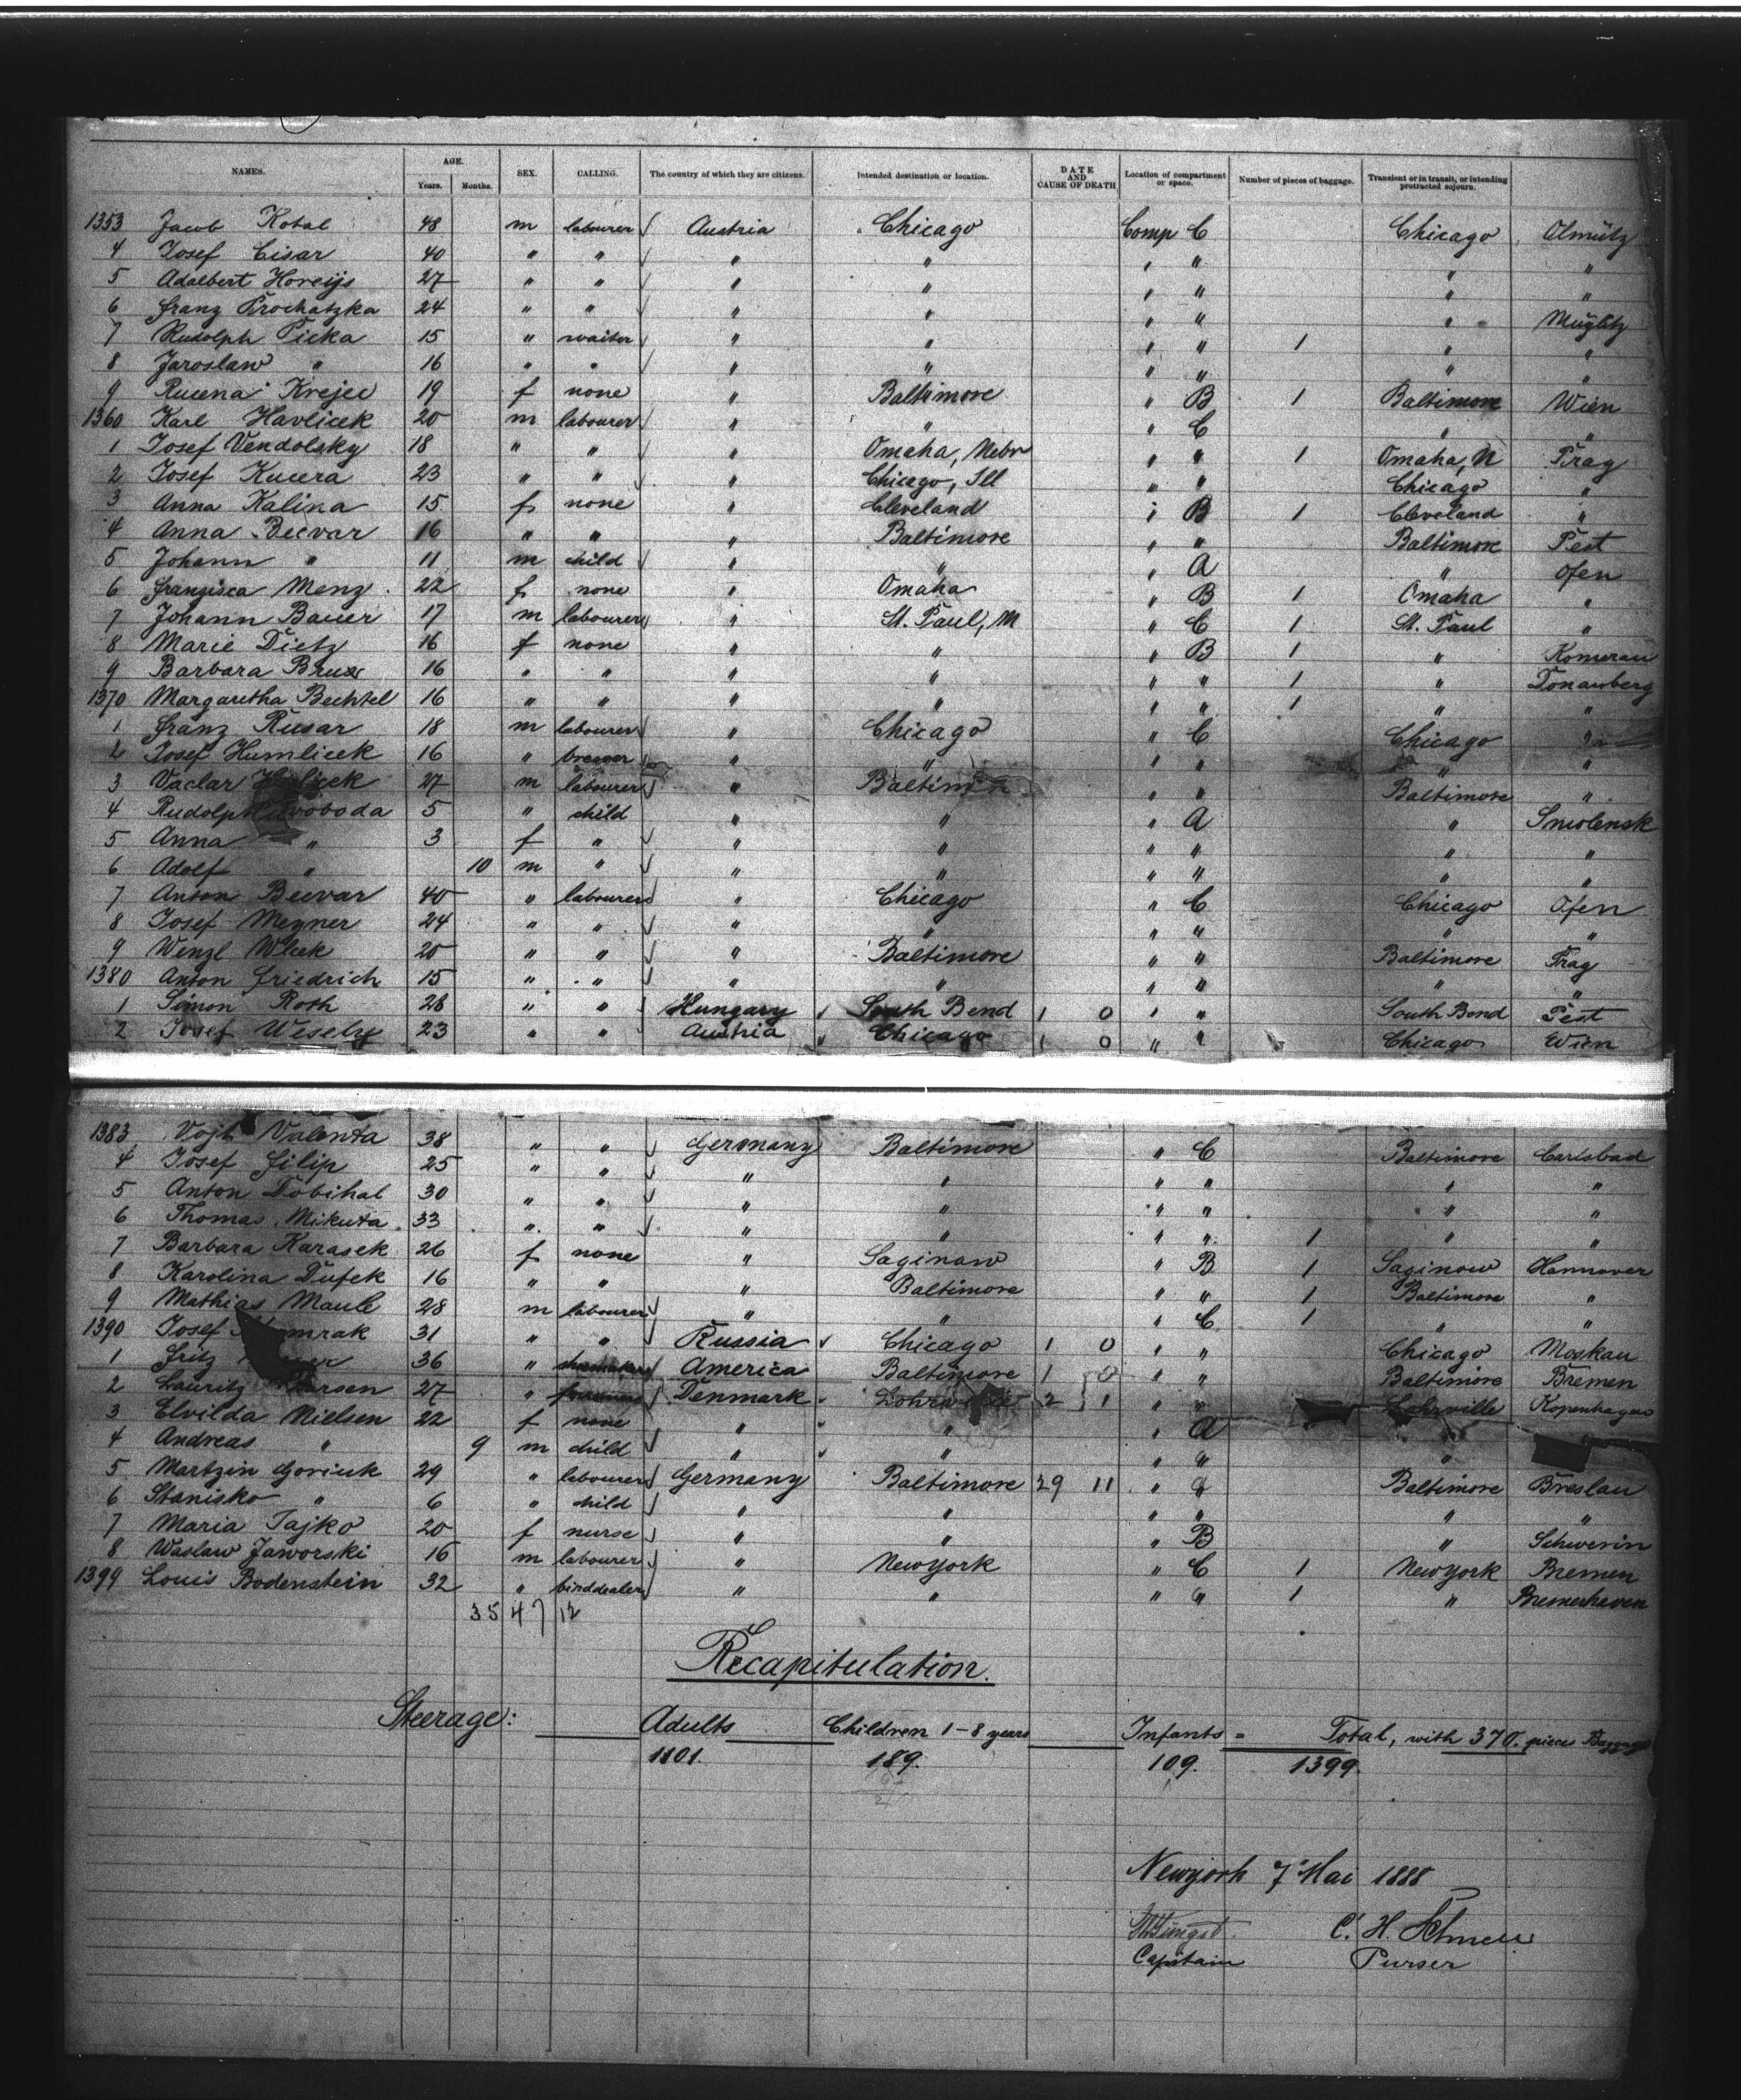 NAMES. AGE. Years. Months. SEX. CALLING. The country of which they are citizens. Intended destination or location. DATE AND CAUSE OF DEATH Location of compartment or space. Number of pieces of baggage. Transient or in transit, or intending protracted sojourn.
1353 Jacob Kotal 48 m labourer Austria Chicago Comp C Chicago Olmütz
4 Josef Cisar 40 " " " " " " " "
5 Adalbert Horeijs 27 " " " " " " " "
6 Franz Prochatzka 24 " " " " " " " Müglitz
7 Rudolph Picka 15 " waiter " " " " 1 " "
8 Jaroslaw " 16 " " " " " " " "
9 Rucena Krejec 19 f none " Baltimore " B 1 Baltimore Wien
1360 Karl Havlicek 20 m labourer " " " C " "
1 Josef Vendolsky 18 " " " Omaha, Nebr " " 1 Omaha, N Prag
2 Josef Kucera 23 " " " Chicago, Ill " " Chicago "
3 Anna Kalina 15 f none " Cleveland " B 1 Cleveland "
4 Anna Becvar 16 " " " Baltimore " " Baltimore Pest
5 Johann " 11 m child " " " A " Ofen
6 Franzisca Menz 22 f none " Omaha " B 1 Omaha "
7 Johann Bauer 17 m labourer " St. Paul, M " C 1 St. Paul "
8 Marie Dietz 16 f none " " " B 1 " Komerau
9 Barbara Brux 16 " " " " " " 1 " Donauberg
1370 Margaretha Bechtel 16 " " " " " " 1 " "
1 Franz Rusar 18 m labourer " Chicago " C Chicago "
2 Josef Humlicek 16 " brewer " " " " " "
3 Vaclar 27 m labourer " Baltimore " " Baltimore "
4 Rudolph Swoboda 5 " child " " " A " Smolensk
5 Anna " 3 f " " " " " " "
6 Adolf " 10 m " " " " " " "
7 Anton Becvar 40 " labourer " Chicago " C Chicago Ofen
8 Josef Meyner 24 " " " " " " " "
9 Wenzl Wlcek 20 " " " Baltimore " " Baltimore Prag
1380 Anton Friedrich 15 " " " " " " " "
1 Simon Roth 28 " " Hungary South Bend 1 0 " " South Bend Pest
2 Josef Wesely 23 " " Austria Chicago 1 0 " " Chicago Wien
1383 Vojt Valenta 38 " " Germany Baltimore " C Baltimore Carlsbad
4 Josef Filip 25 " " " " " " " "
5 Anton Dobihal 30 " " " " " " " "
6 Thomas Mikuta 33 " " " " " " 1 " "
7 Barbara Karasek 26 f none " Saginaw " B 1 Saginaw Hannover
8 Karolina Dufek 16 " " " Baltimore " " 1 Baltimore "
9 Mathias Maule 28 m labourer " " " C 1 " "
1390 Josef 31 " " Russia Chicago 1 0 " " Chicago Moskau
1 Fritz 36 " America Baltimore 1 0 " " Baltimore Bremen
2 Lauritz Larsen 27 " Denmark 2 1 " " Lohrville Kopenhagen
3 Elvilda Nielsen 22 f none " " " A
4 Andreas " 9 m child " " " " "
5 Martzin Goriuk 29 " labourer Germany Baltimore 29 11 " " Baltimore Breslau
6 Stanisko " 6 " child " " " " " "
7 Maria Tajko 20 f nurse " " " B " Schwerin
8 Waslaw Jaworski 16 m labourer " New York " C 1 New York Bremen
1399 Louis Bodenstein 32 " birddealer " " " " 1 " Bremerhaven
35 47 12
Recapitulation.
Steerage: Adults Children 1-8 years Infants = Total, with 370. pieces Baggage
1101. 189. 109. 1399.
Newyork 7 Mai 1888
C. H.
Capitain Purser